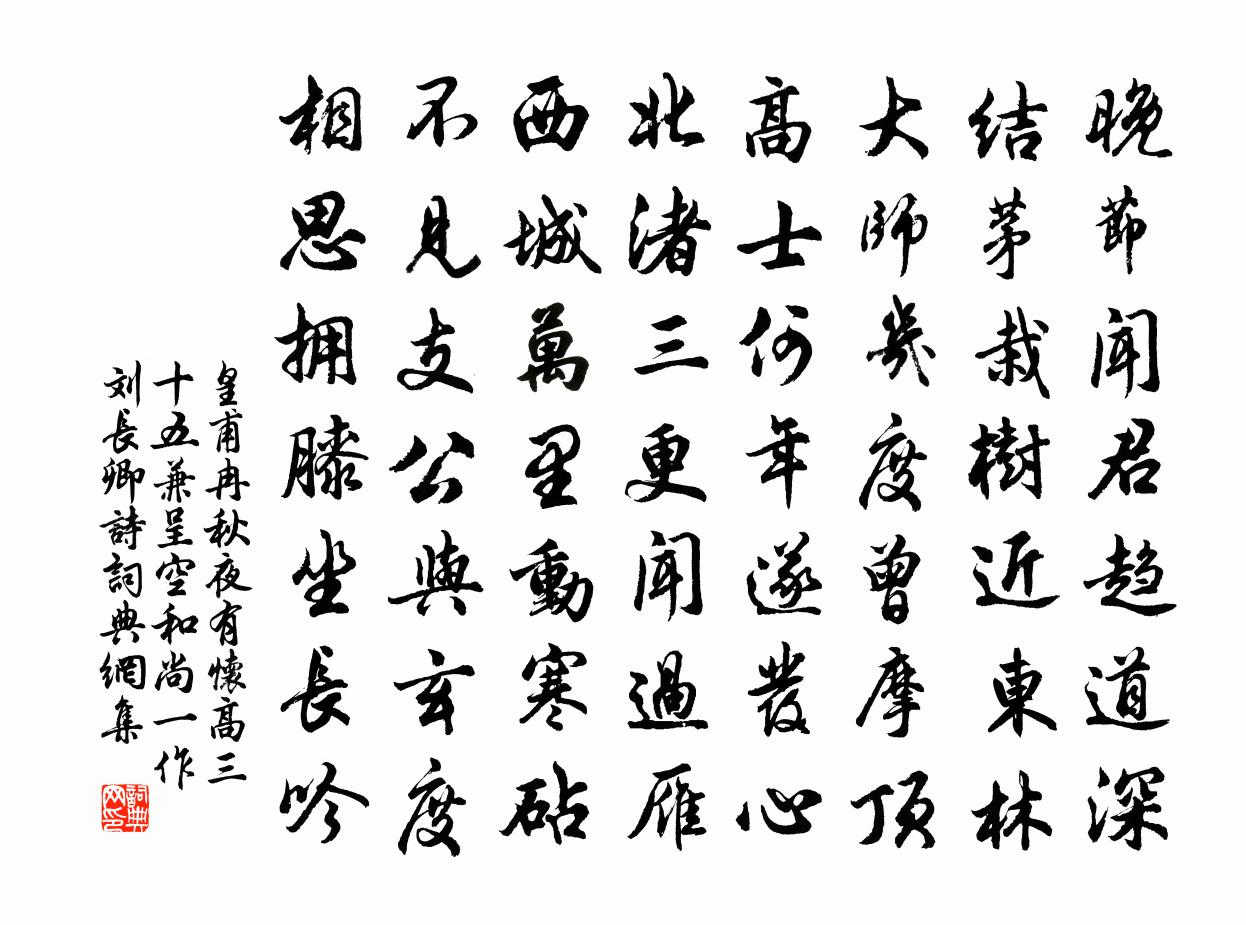 晚節聞君趨道深
结茅栽樹近東林
大師幾度曾摩頂
高士何年遂發心
北渚三更聞過雁
西城萬里動寒砧
不見支公與玄度
相思拥膝坐長吟
皇甫冉秋夜有懷高三
十五兼呈空和尚一作
刘長卿詩詞典網集
詞典网印